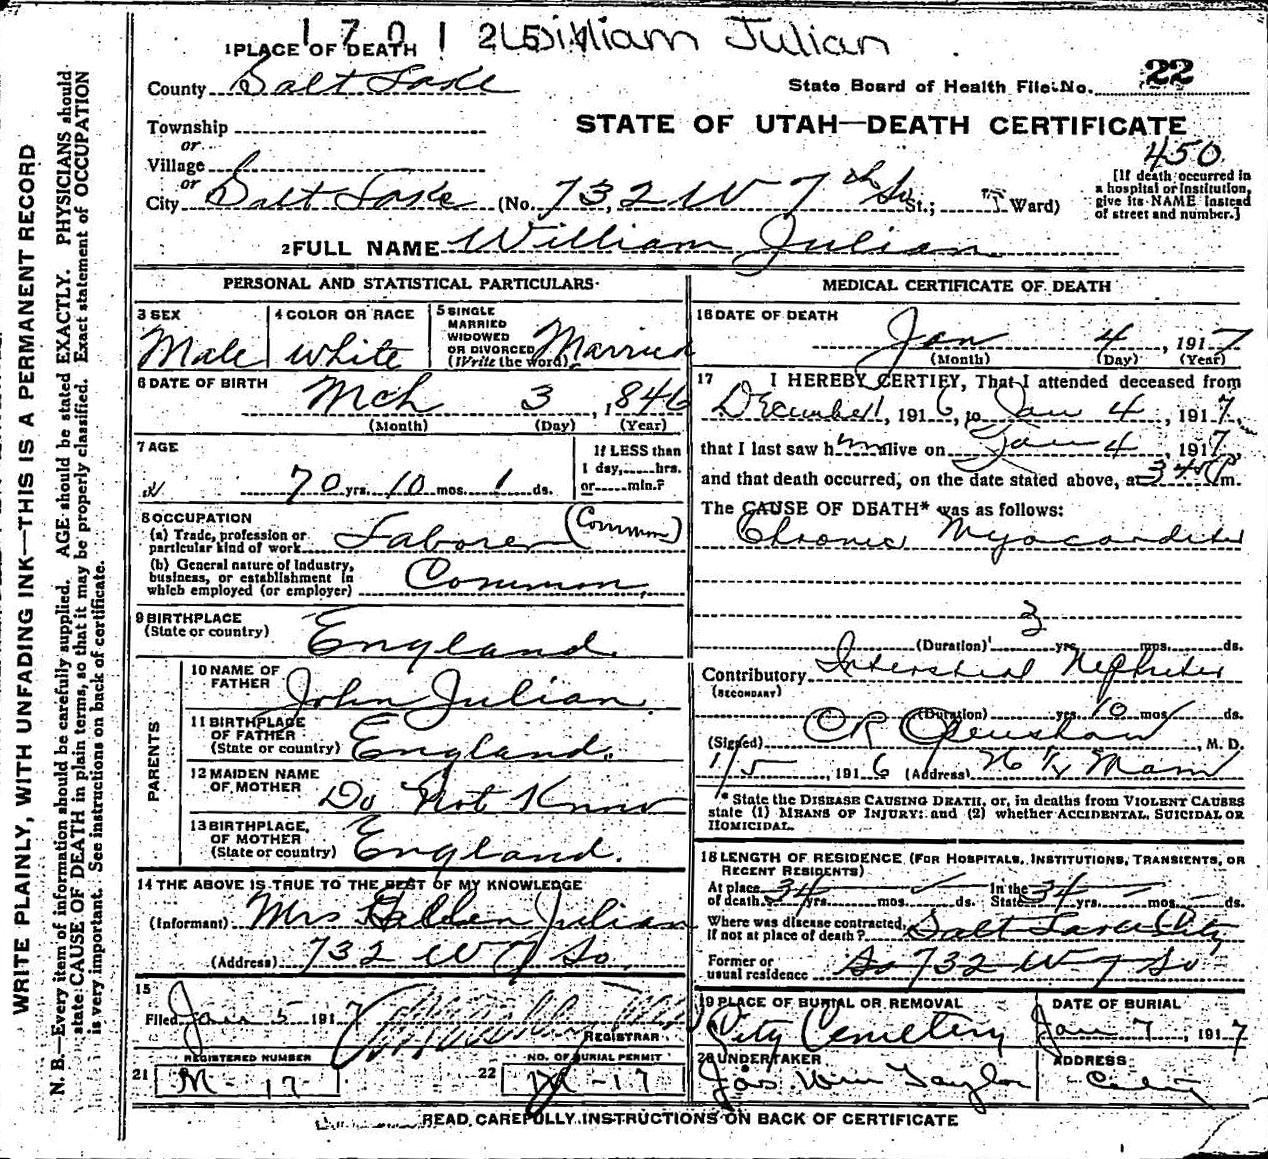 1 7 0 1 2 5 William Julian
1 PLACE OF DEATH
County Salt Lake
State Board of Health File No. 22
Township
or
STATE OF UTAH—DEATH CERTIFICATE
Village
or
450
City Salt Lake (No. 732 W 7th So St.; Ward)
[If death occurred in a hospital or institution, give its NAME instead of street and number.]
2 FULL NAME William Julian
PERSONAL AND STATISTICAL PARTICULARS
3 SEX
Male
4 COLOR OR RACE
White
5 SINGLE
MARRIED
WIDOWED
OR DIVORCED
(Write the word)
Married
6 DATE OF BIRTH
Mch 3, 1846
(Month) (Day) (Year)
7 AGE
70 yrs. 10 mos. 1 ds.
If LESS than
1 day, hrs.
or min.?
8 OCCUPATION
(a) Trade, profession or
particular kind of work Laborer (Common)
(b) General nature of industry,
business, or establishment in
which employed (or employer) Common
9 BIRTHPLACE
(State or country) England.
PARENTS
10 NAME OF
FATHER John Julian.
11 BIRTHPLACE
OF FATHER
(State or country) England.
12 MAIDEN NAME
OF MOTHER Do Not Know
13 BIRTHPLACE,
OF MOTHER
(State or country) England.
14 THE ABOVE IS TRUE TO THE BEST OF MY KNOWLEDGE
(Informant) Mrs Julian
(Address) 732 W 7 So.
15
Filed Jan 5 1917
REGISTRAR
REGISTERED NUMBER
21 M-17
NO. OF BURIAL PERMIT
22 M-17
MEDICAL CERTIFICATE OF DEATH
16 DATE OF DEATH
Jan 4, 1917
(Month) (Day) (Year)
17 I HEREBY CERTIFY, That I attended deceased from
December, 1916, to Jan 4, 1917,
that I last saw him alive on Jan 4, 1917,
and that death occurred, on the date stated above, at 345 P m.
The CAUSE OF DEATH* was as follows:
Chronic Myocarditis
3
(Duration) yrs. mos. ds.
Contributory Interstitial Nephritis
(SECONDARY)
(Duration) yrs. 10 mos. ds.
(Signed) C R Openshaw, M. D.
1/5, 1916 (Address) 76 1/2 Main
* State the DISEASE CAUSING DEATH, or, in deaths from VIOLENT CAUSES
state (1) MEANS OF INJURY: and (2) whether ACCIDENTAL, SUICIDAL OR
HOMICIDAL.
18 LENGTH OF RESIDENCE (FOR HOSPITALS, INSTITUTIONS, TRANSIENTS, OR
RECENT RESIDENTS)
At place
of death 34 yrs. mos. ds.
In the
State 34 yrs. mos. ds.
Where was disease contracted,
if not at place of death? Salt Lake City
Former or
usual residence So 732 W 7 So
19 PLACE OF BURIAL OR REMOVAL
City Cemetery
DATE OF BURIAL
Jan 7, 1917
20 UNDERTAKER
Jos. Wm Taylor
ADDRESS
City
READ CAREFULLY INSTRUCTIONS ON BACK OF CERTIFICATE
WRITE PLAINLY, WITH UNFADING INK—THIS IS A PERMANENT RECORD
N. B.—Every item of information should be carefully supplied. AGE should be stated EXACTLY. PHYSICIANS should
state CAUSE OF DEATH in plain terms, so that it may be properly classified. Exact statement of OCCUPATION
is very important. See instructions on back of certificate.